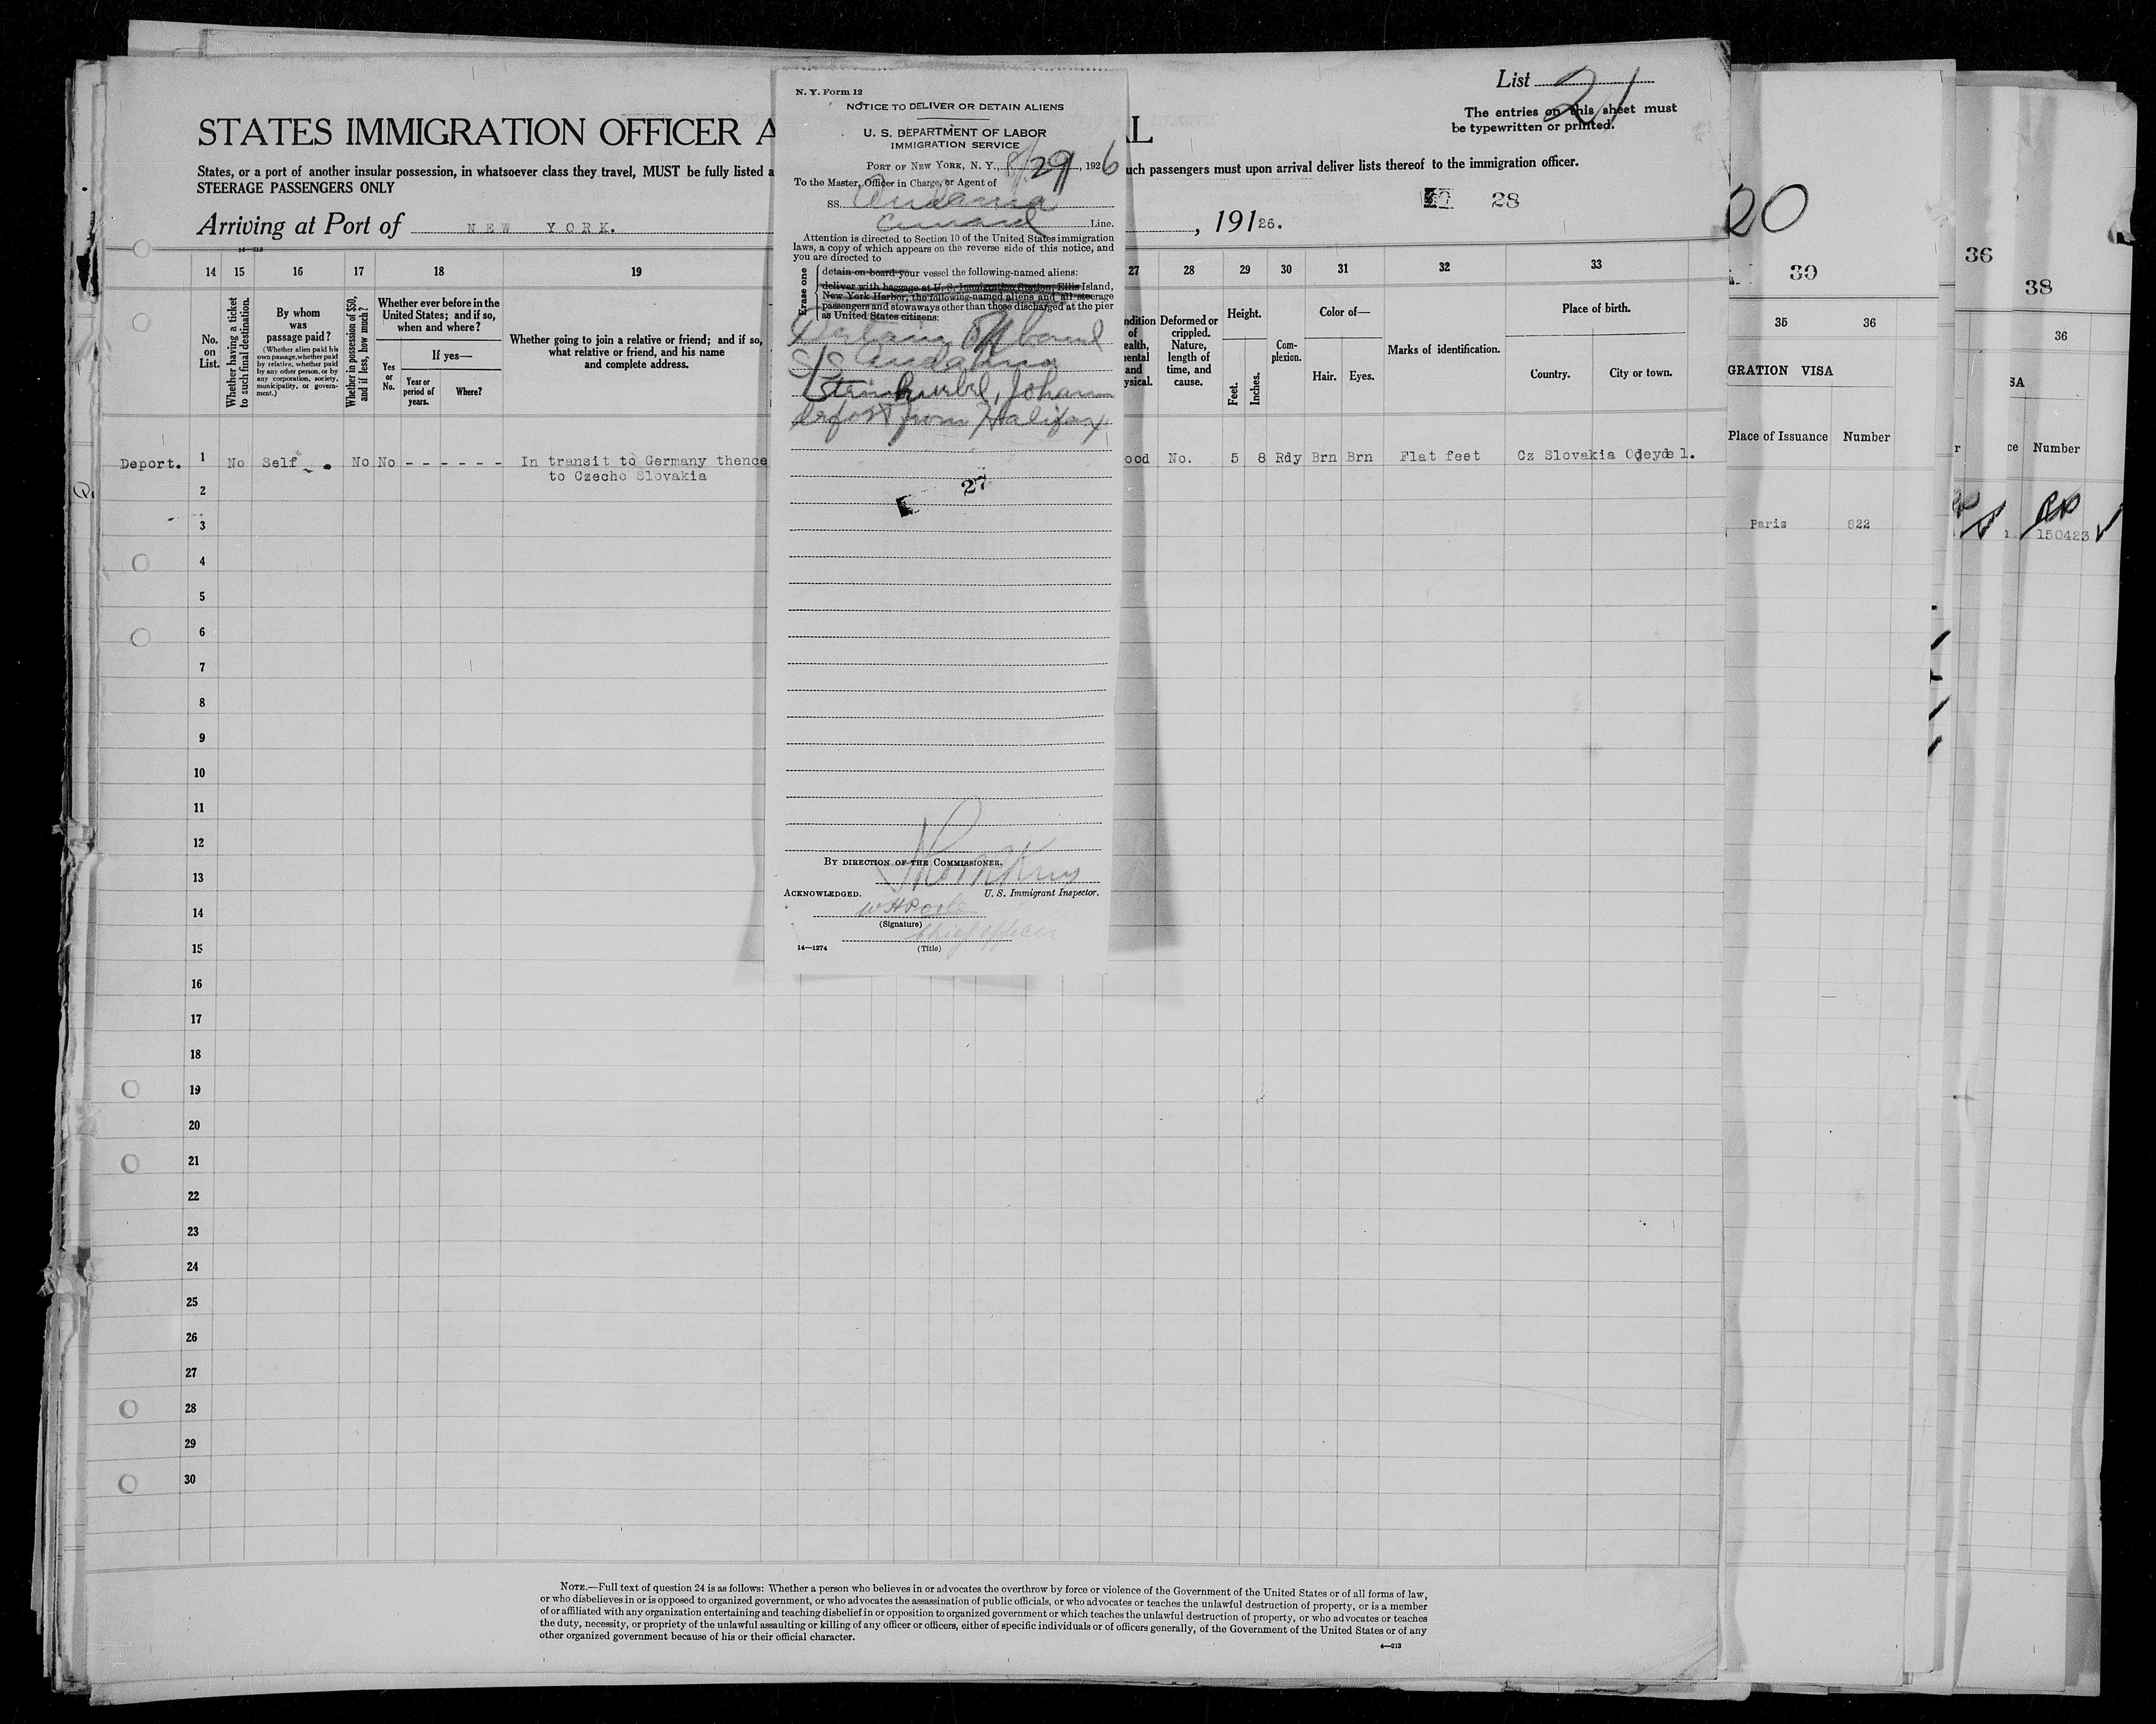 List 21
The entries on this sheet must
be typewritten or printed.
STATES IMMIGRATION OFFICER A
L
States, or a port of another insular possession, in whatsoever class they travel, MUST be fully listed a
uch passengers must upon arrival deliver lists thereof to the immigration officer.
STEERAGE PASSENGERS ONLY
28
Arriving at Port of NEW YORK.
, 19126.
14—213
N. Y. Form 12
NOTICE TO DELIVER OR DETAIN ALIENS
U. S. DEPARTMENT OF LABOR
IMMIGRATION SERVICE
PORT OF NEW YORK, N. Y., 8/29, 1926
To the Master, Officer in Charge, or Agent of
SS. Andania
Cunard Line.
Attention is directed to Section 10 of the United States immigration
laws, a copy of which appears on the reverse side of this notice, and
you are directed to
Erase one
detain on board your vessel the following-named aliens:
deliver with baggage at U. S. Immigration Station, Ellis Island,
New York Harbor, the following-named aliens and all steerage
passengers and stowaways other than those discharged at the pier
as United States citizens:
SS Andania
Johann
from Halifax
27
BY DIRECTION OF THE COMMISSIONER.
U. S. Immigrant Inspector.
ACKNOWLEDGED.
(Signature)
chief officer
(Title)
14—1274
14 15 16 17 18 19 27 28 29 30 31 32 33
No.
on
List.
Whether having a ticket
to such final destination.
By whom
was
passage paid?
(Whether alien paid his
own passage, whether paid
by relative, whether paid
by any other person, or by
any corporation, society,
municipality, or govern-
ment.)
Whether in possession of $50,
and if less, how much?
Whether ever before in the
United States; and if so,
when and where?
If yes—
Yes
or
No.
Year or
period of
years.
Where?
Whether going to join a relative or friend; and if so,
what relative or friend, and his name
and complete address.
ndition
of
ealth,
mental
and
ysical.
Deformed or
crippled.
Nature,
length of
time, and
cause.
Height.
Feet.
Inches.
Com-
plexion.
Color of—
Hair.
Eyes.
Marks of identification.
Place of birth.
Country.
City or town.
Deport. 1 No Self No No - - - - - - In transit to Germany thence
to Czecho Slovakia
ood No. 5 8 Rdy Brn Brn Flat feet Cz Slovakia
2
3
4
5
6
7
8
9
10
11
12
13
14
15
16
17
18
19
20
21
22
23
24
25
26
27
28
29
30
NOTE.—Full text of question 24 is as follows: Whether a person who believes in or advocates the overthrow by force or violence of the Government of the United States or of all forms of law,
or who disbelieves in or is opposed to organized government, or who advocates the assassination of public officials, or who advocates or teaches the unlawful destruction of property, or is a member
of or affiliated with any organization entertaining and teaching disbelief in or opposition to organized government or which teaches the unlawful destruction of property, or who advocates or teaches
the duty, necessity, or propriety of the unlawful assaulting or killing of any officer or officers, either of specific individuals or of officers generally, of the Government of the United States or of any
other organized government because of his or their official character.
4—213
20
30
35 36
GRATION VISA
Place of Issuance Number
Paris 822
36
38
36
SA
ce Number
150423